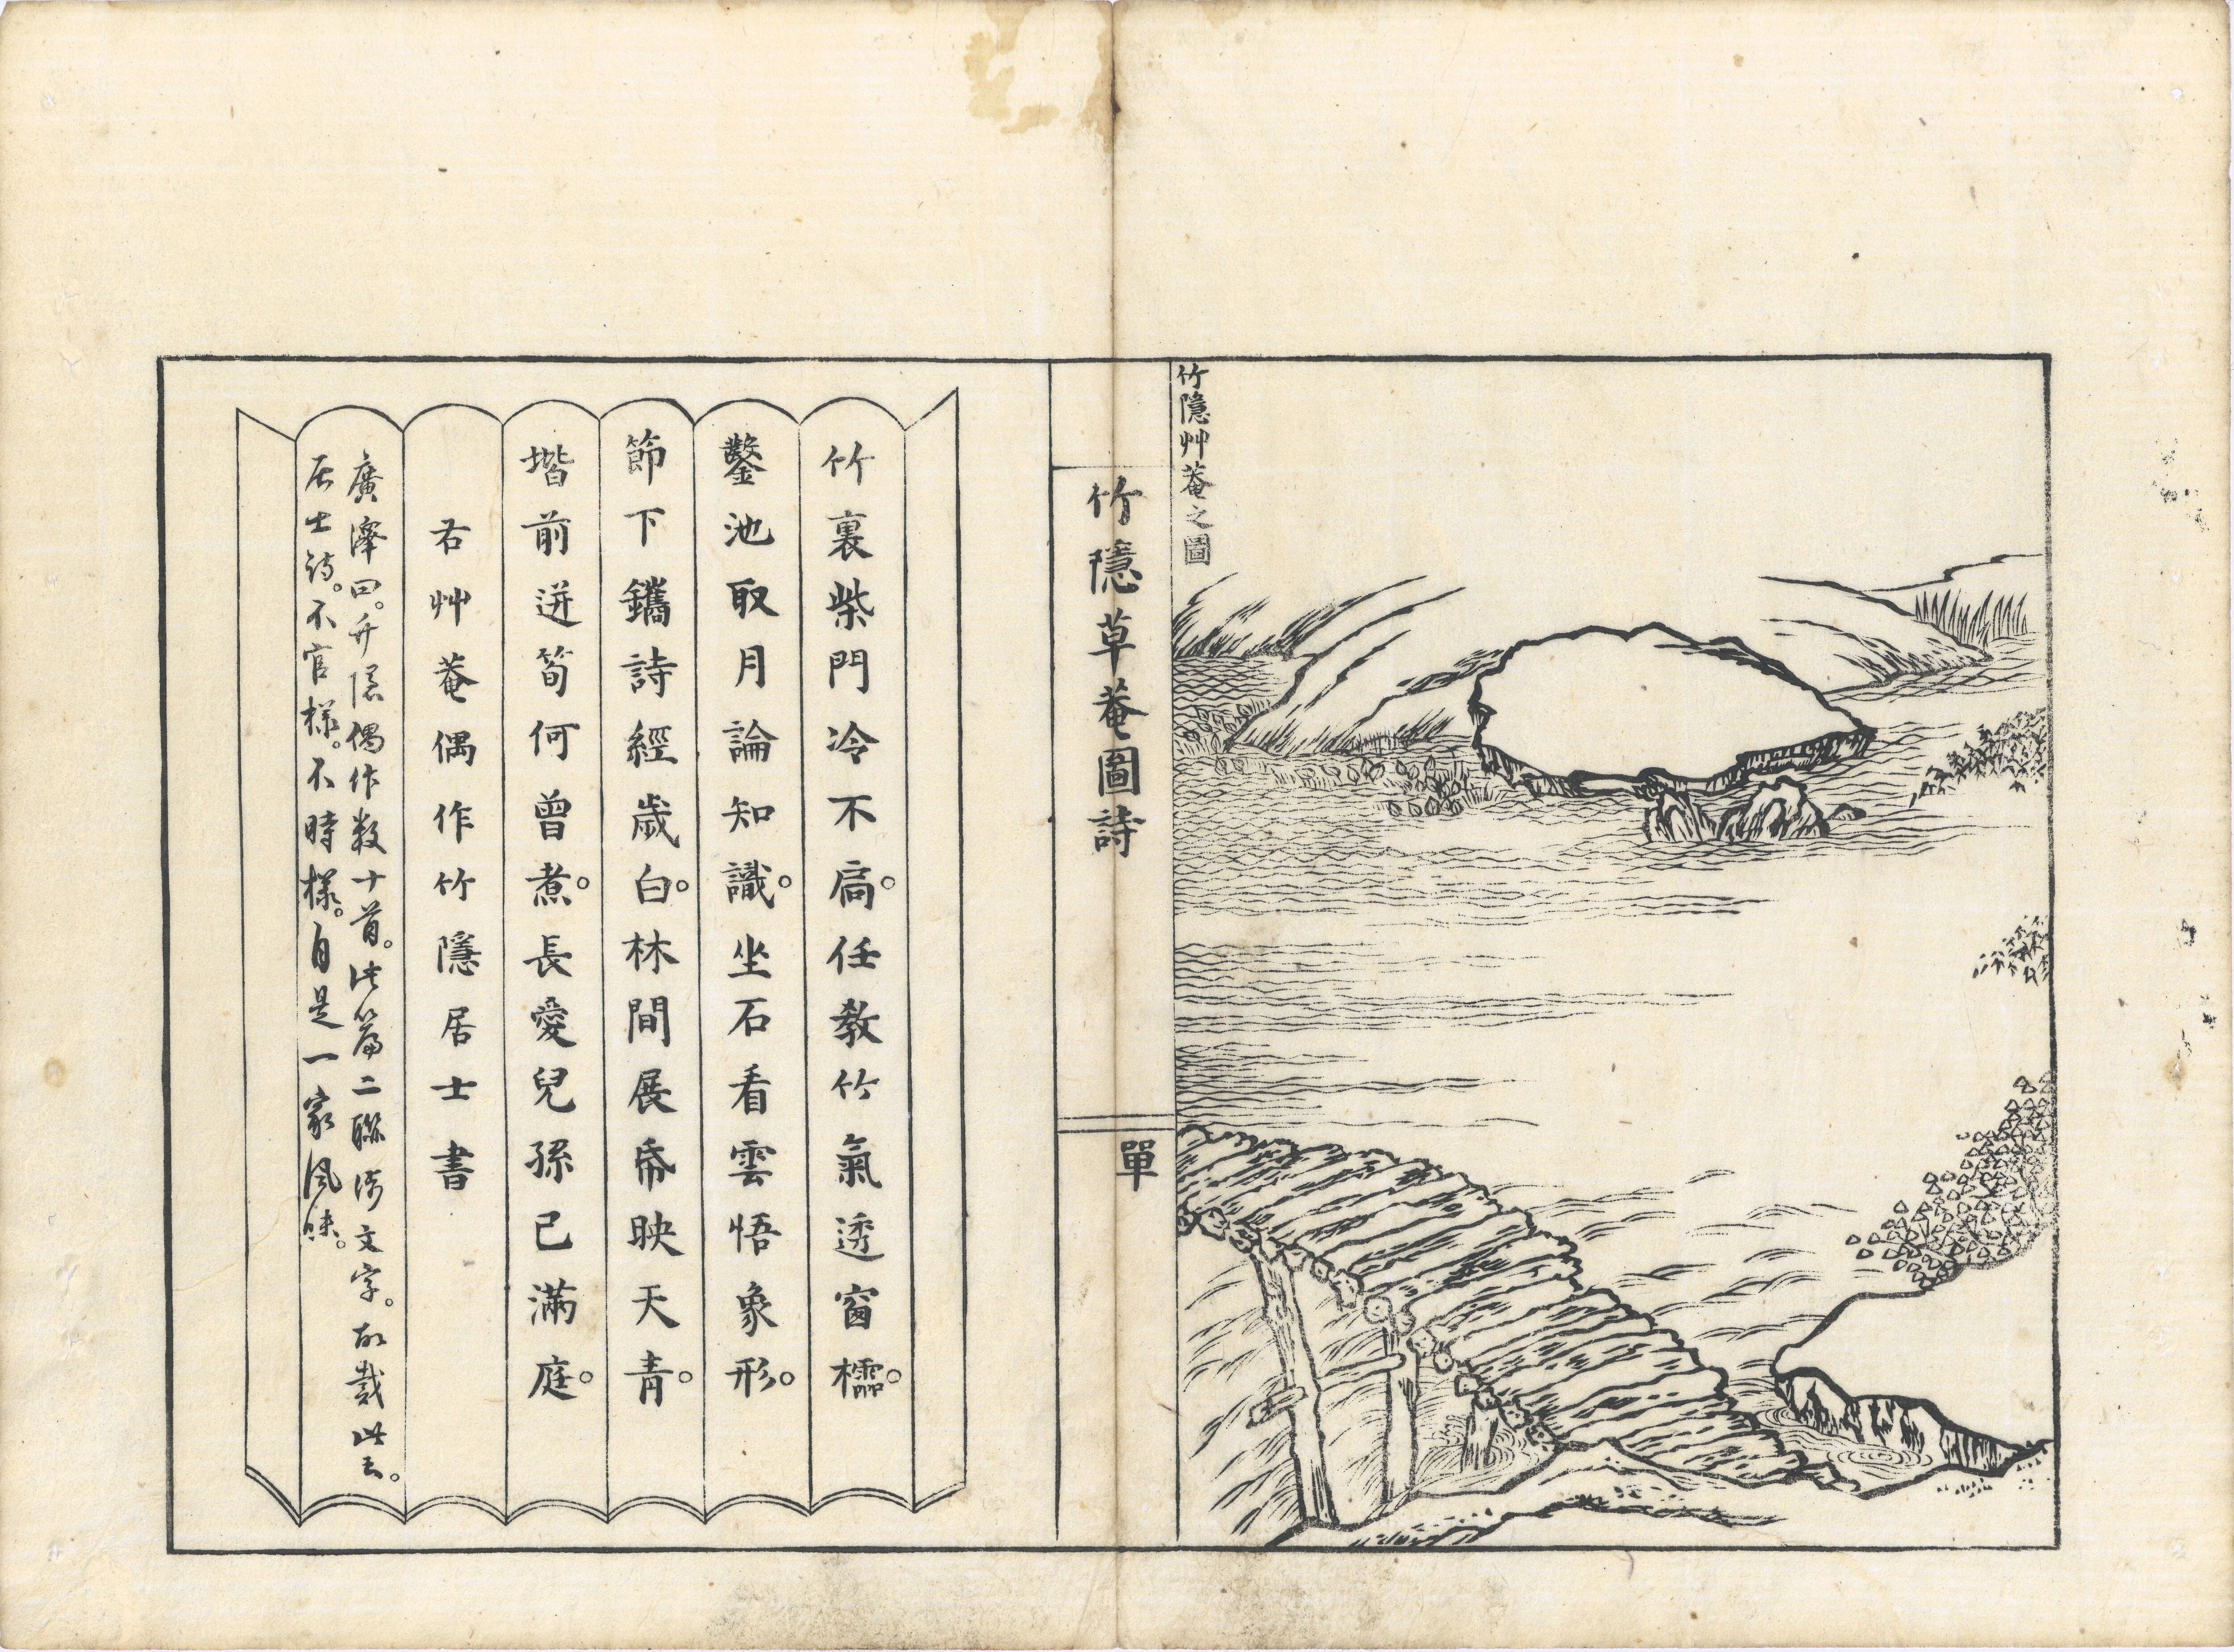 竹隱艸菴之圖
竹隱草菴圖詩
單
竹裏柴門冷不扃。任教竹氣透窗櫺。
鑿池取月論知識。坐石看雲悟象形。
節下鐫詩經歲白。林間展帋映天青。
堦前迸筍何曾煮。長愛兒孫已滿庭。
右艸菴偶作竹隱居士書
廣澤曰。竹隱偶作數十首。此篇二聯涉文字。故載此云。
居士詩。不官樣。不時樣。自是一家風味。